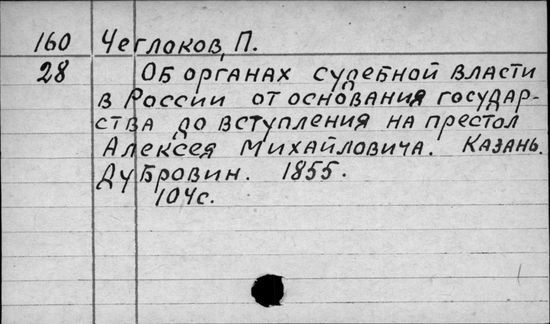 160 Чеглоков, П.
28 Об органах судебной власти
в России от основания государ-
ства до вступления на престол
Алексея Михайловича. Казань.
Дубровин. 1855.
104с.